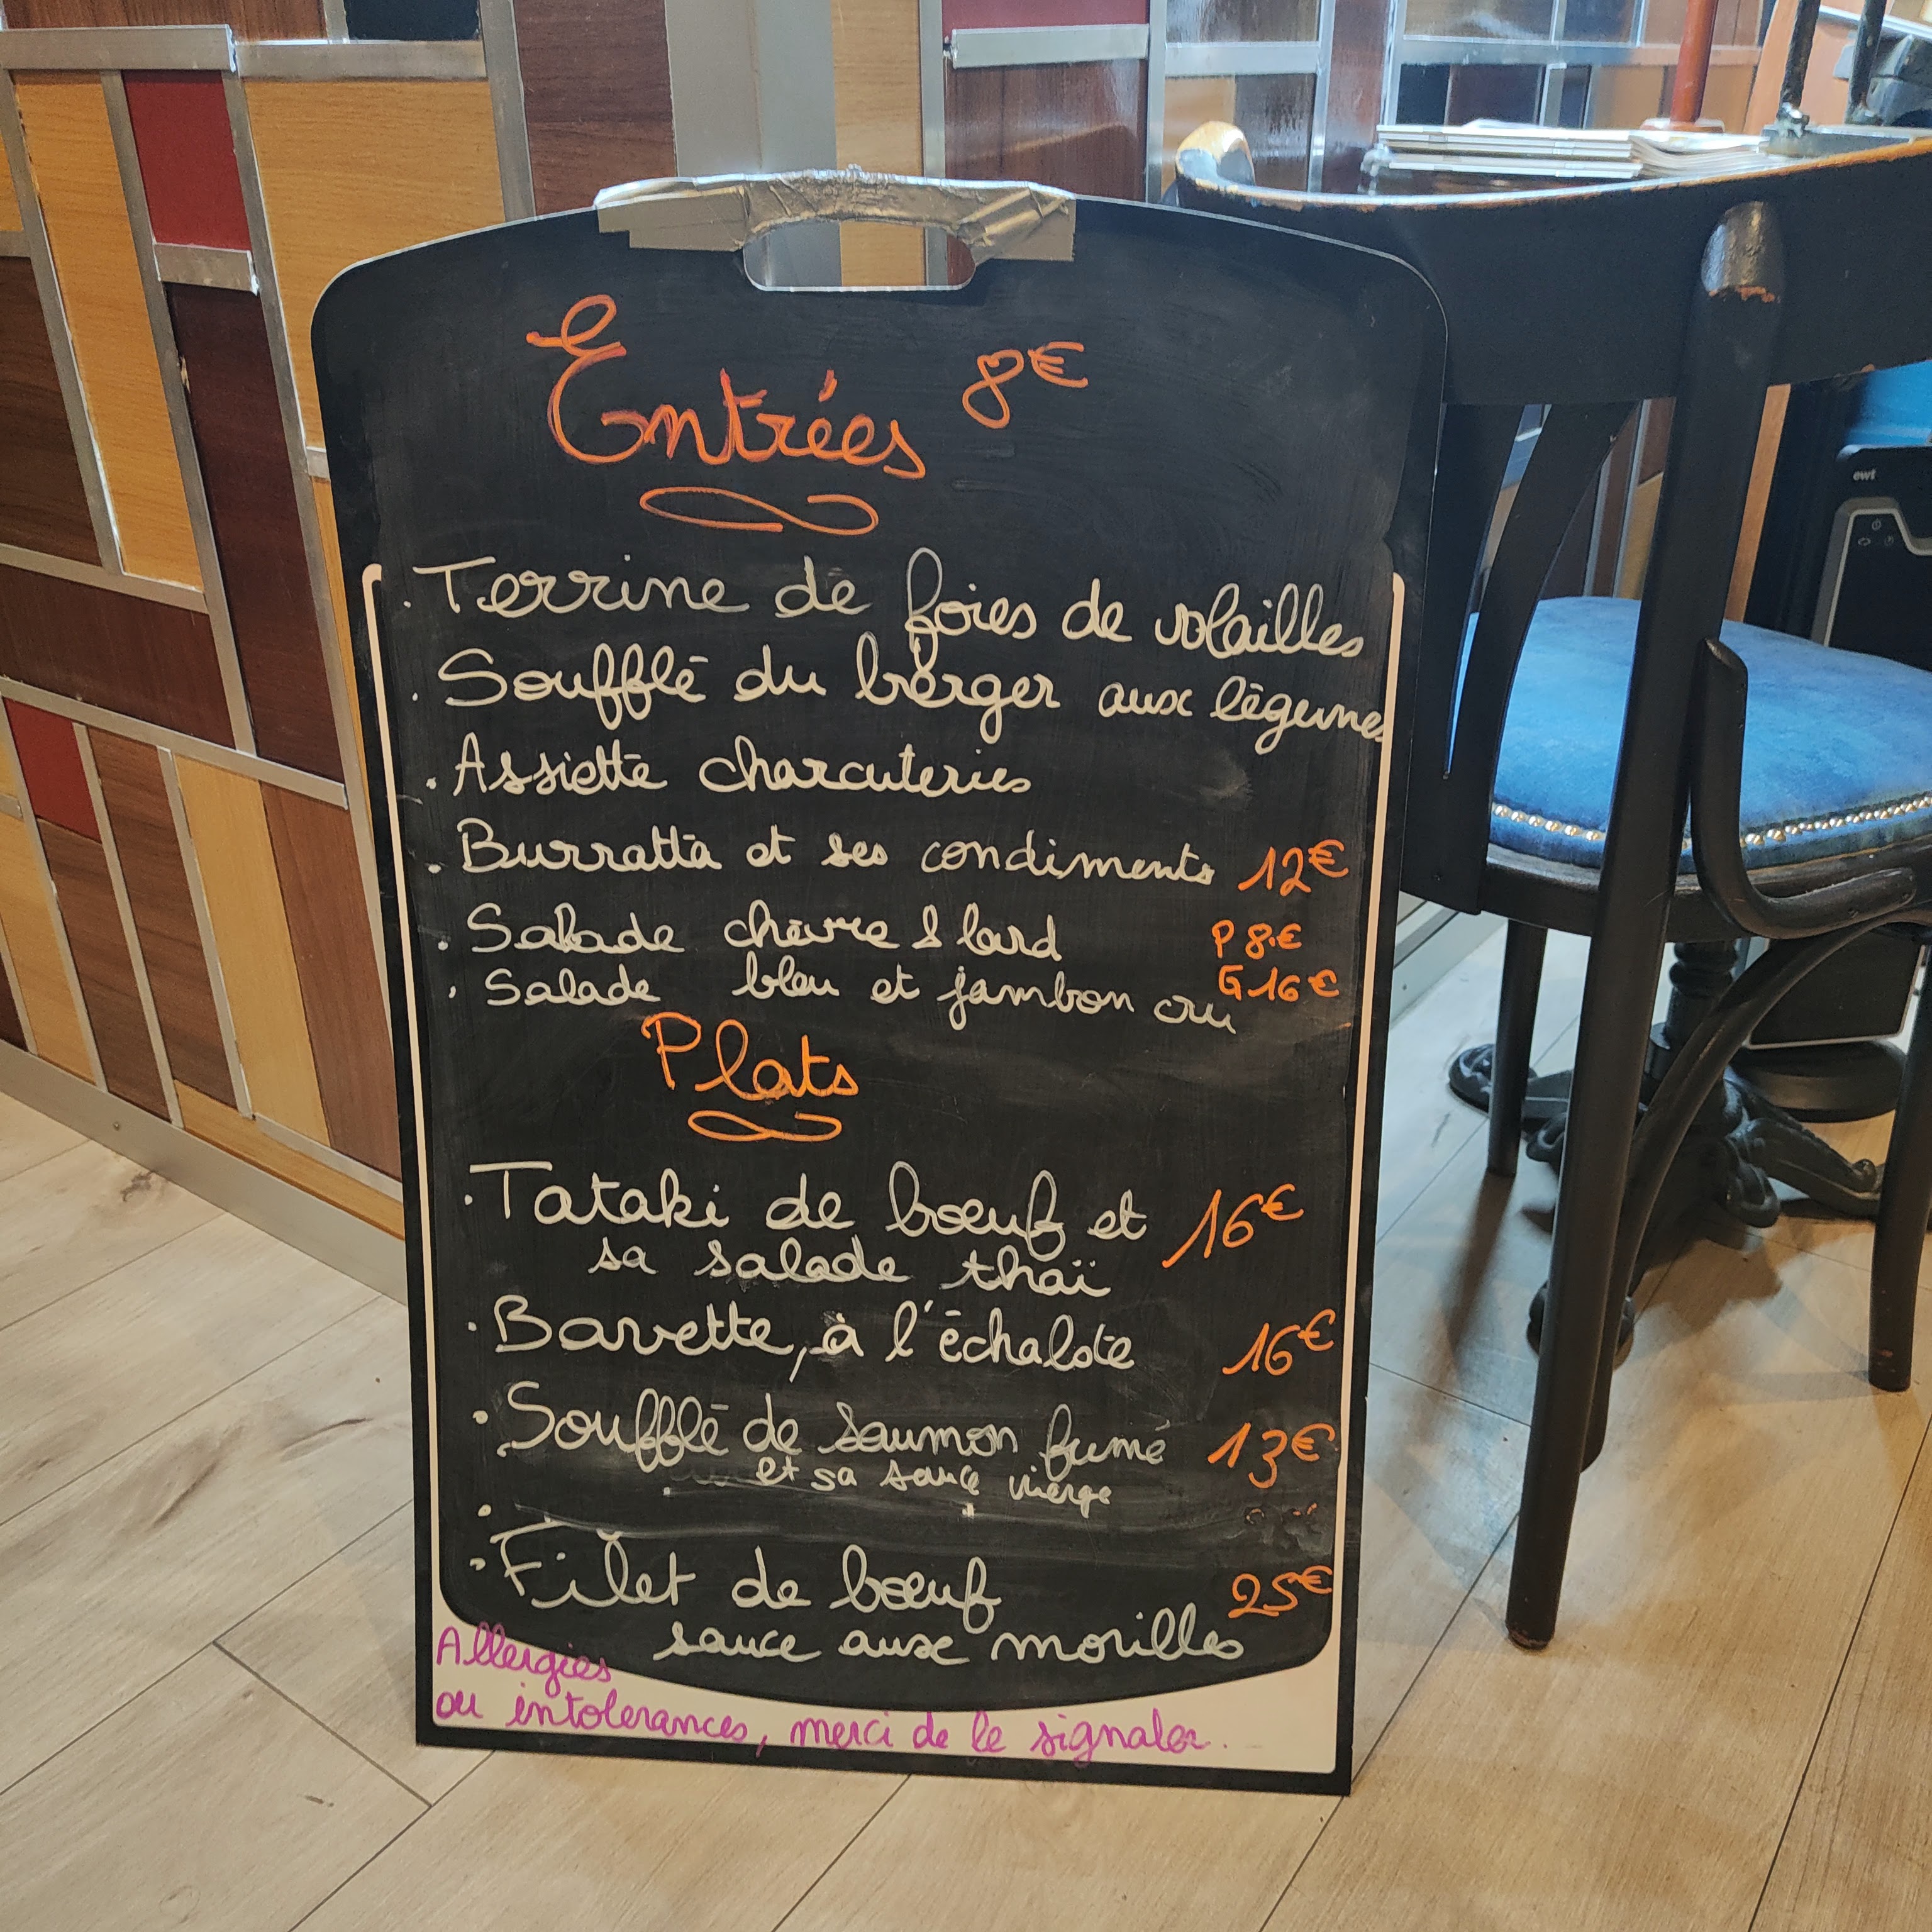 Entrées 8€
. Terrine de foies de volailles
. Soufflé du berger aux légumes
. Assiette charcuteries
. Burratta et ses condiments 12€
. Salade chèvre & lard P 8€
. Salade bleu et jambon cru G 16€
Plats
. Tataki de bœuf et 16€
sa salade thaï
. Bavette, à l'échalote 16€
. Soufflé de saumon fumé 13€
et sa sauce vierge
. Filet de bœuf 25€
sauce aux morilles
Allergies
ou intolerances, merci de le signaler.
ewt